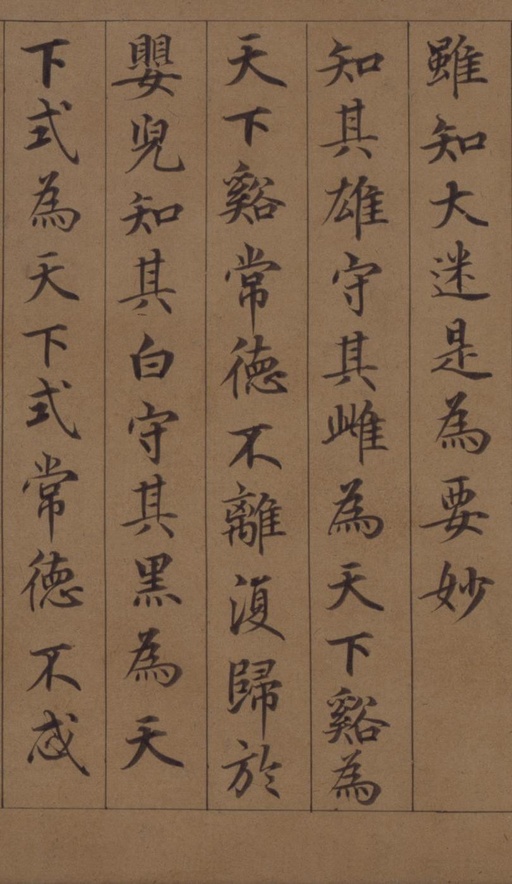 雖知大迷是為要妙
知其雄守其雌為天下谿為
天下谿常德不離復歸於
嬰兒知其白守其黑為天
下式為天下式常德不忒